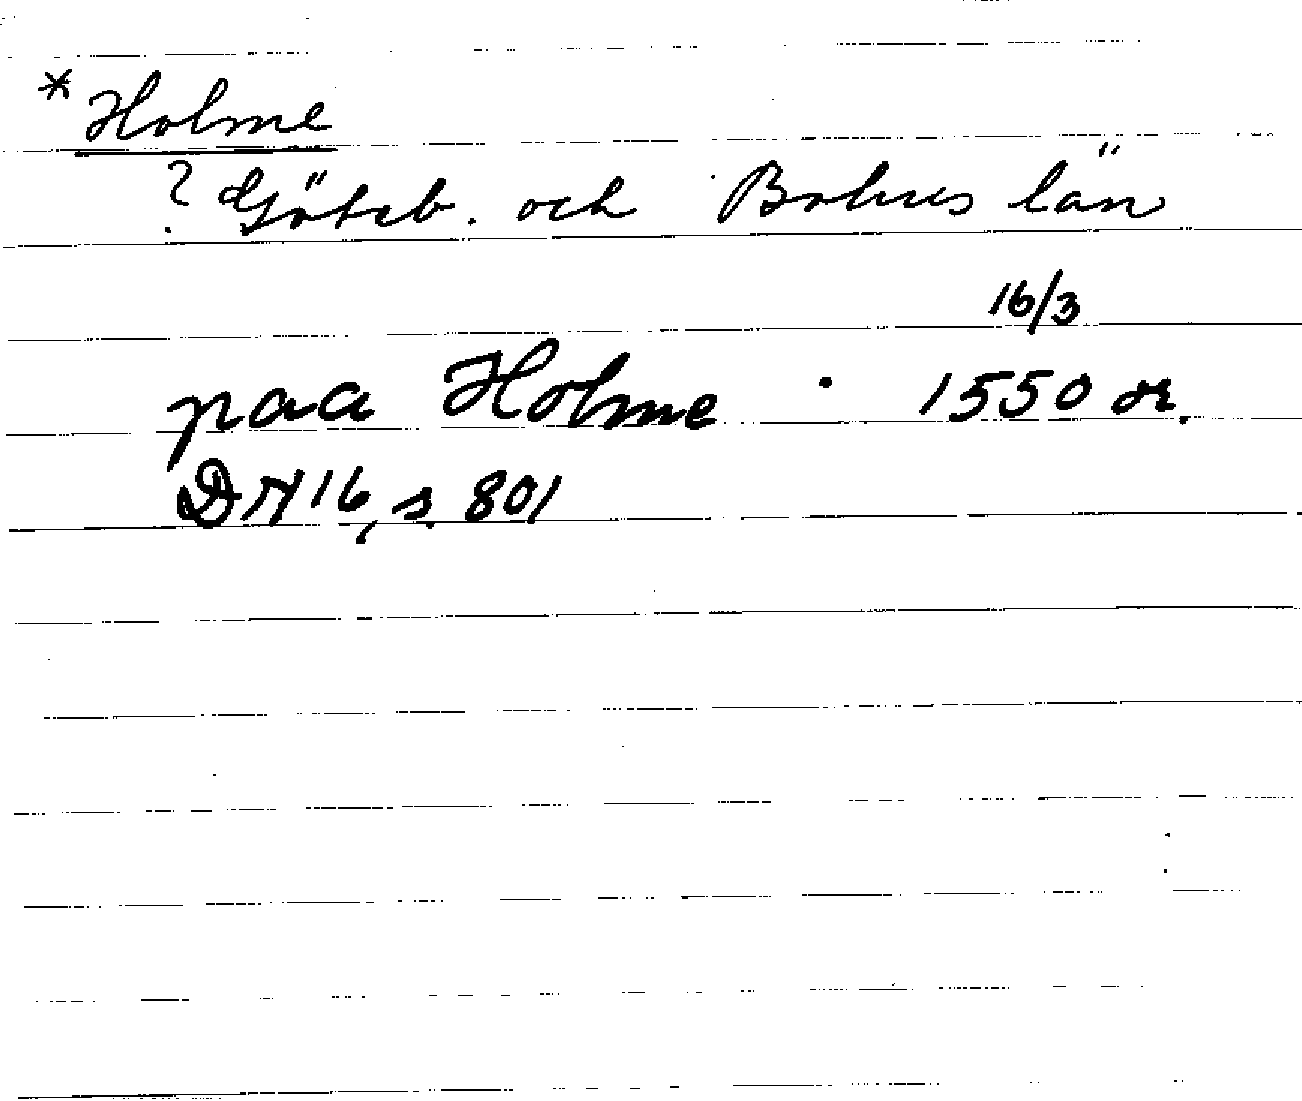 * Holme
? Göteb. och Bohus län
16/3
paa Holme · 1550 or.
DN 16, s. 801